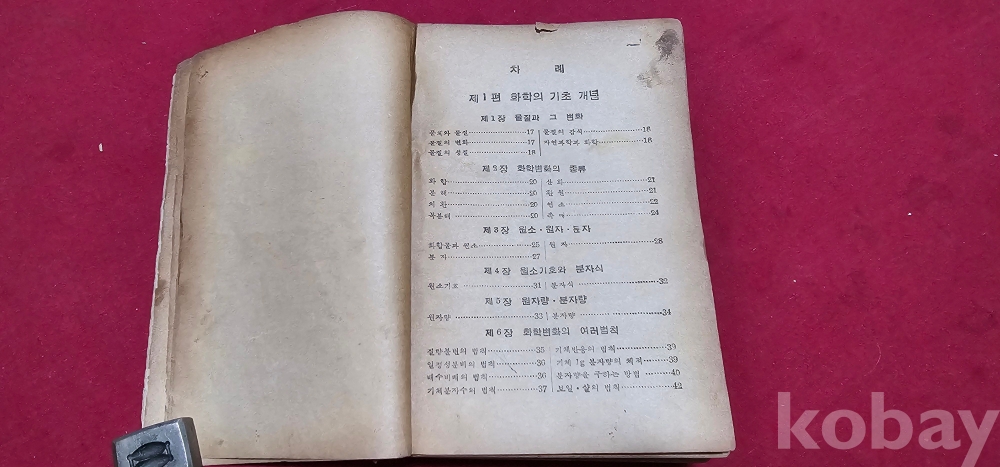 차 례
제1편 화학의 기초 개념
제1장 물질과 그 변화
물체와 물질 17 물질의 감식 18
물질의 변화 17 자연과학과 화학 18
물질의 성질 18
제2장 화학변화의 종류
화 합 20 산 화 21
분 해 20 환 원 21
치 환 20 연 소 22
복분해 20 촉 매 24
제3장 원소·원자·분자
화합물과 원소 25 원 자 28
분 자 27
제4장 원소기호와 분자식
원소기호 31 분자식 32
제5장 원자량·분자량
원자량 33 분자량 34
제6장 화학변화의 여러법칙
질량불변의 법칙 35 기체반응의 법칙 39
일정성분비의 법칙 36 기체 1g 분자량의 체적 39
배수비례의 법칙 36 분자량을 구하는 방법 40
기체분자수의 법칙 37 보일·샬의 법칙 42
kobay